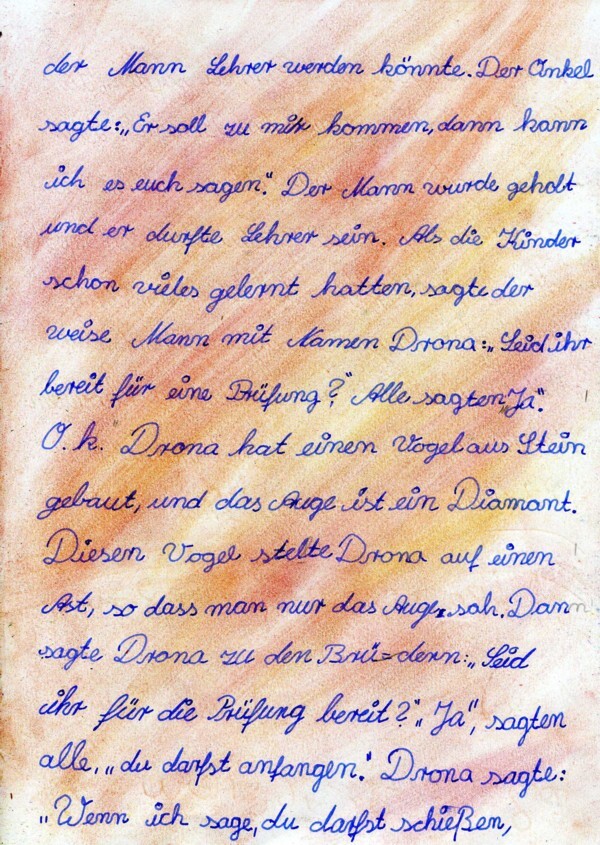 der Mann Lehrer werden könnte. Der Onkel
sagte: „Er soll zu mir kommen, dann kann
ich es euch sagen." Der Mann wurde geholt
und er durfte Lehrer sein. Als die Kinder
schon vieles gelernt hatten, sagte der
weise Mann mit Namen Drona: „Seid ihr
bereit für eine Prüfung?" Alle sagten „Ja".
O.k. Drona hat einen Vogel aus Stein
gebaut, und das Auge ist ein Diamant.
Diesen Vogel stellte Drona auf einen
Ast, so dass man nur das Auge sah. Dann
sagte Drona zu den Brü=dern: „Seid
ihr für die Prüfung bereit?" „Ja", sagten
alle, „du darfst anfangen." Drona sagte:
„Wenn ich sage, du darfst schießen,